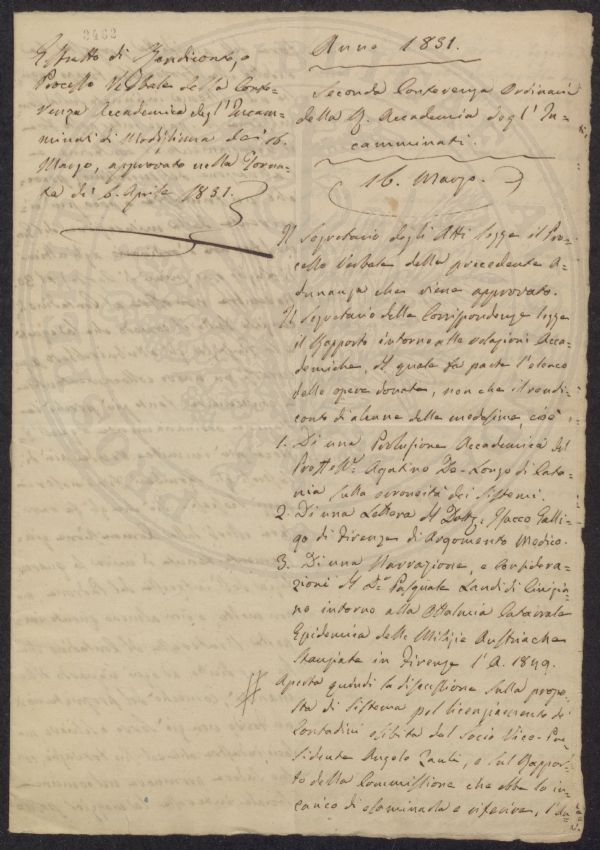 2462
Estratto di Rendiconto, o
Processo Verbale della Confe-
renza Accademica degl'Incam-
minati di Modigliana dei 16.
Marzo, approvato nella Torna-
ta di 6. Aprile 1851.
Anno 1851.
Seconda Conferenza Ordinaria
della R. Accademia degl'In-
camminati.
16. Marzo.
Il Segretario degli Atti legge il Pro-
cesso Verbale della precedente A-
dunanza che viene approvato.
Il Segretario della Corrispondenza legge
il Rapporto intorno alle relazioni Acca-
demiche, del quale fa parte l'elenco
delle opere donate, non che il rendi-
conto di alcune delle medesime, cioè
1. Di una Prolusione Accademica del
Agatino De-Longo di Cata-
nia sulla erroneità dei Sistemi.
2. Di una Lettera del Dott. Isacco Galli-
go di Firenze di Argomento Medico.
3. Di una Narrazione, e Considera-
zioni del Dr Pasquale Landi di
intorno alla Ottalmia Catarrale
Epidemica delle Milizie Austriache
Stanziate in Firenze l'A. 1849.
Aperta quindi la discussione sulla propo-
sta di Sistema pel licenziamento de'
Contadini esibita dal Socio Vice-Pre-
sidente Angelo Zauli, e sul Rappor-
to della Commissione che ebbe lo in-
carico di esaminarla e riferire, l'